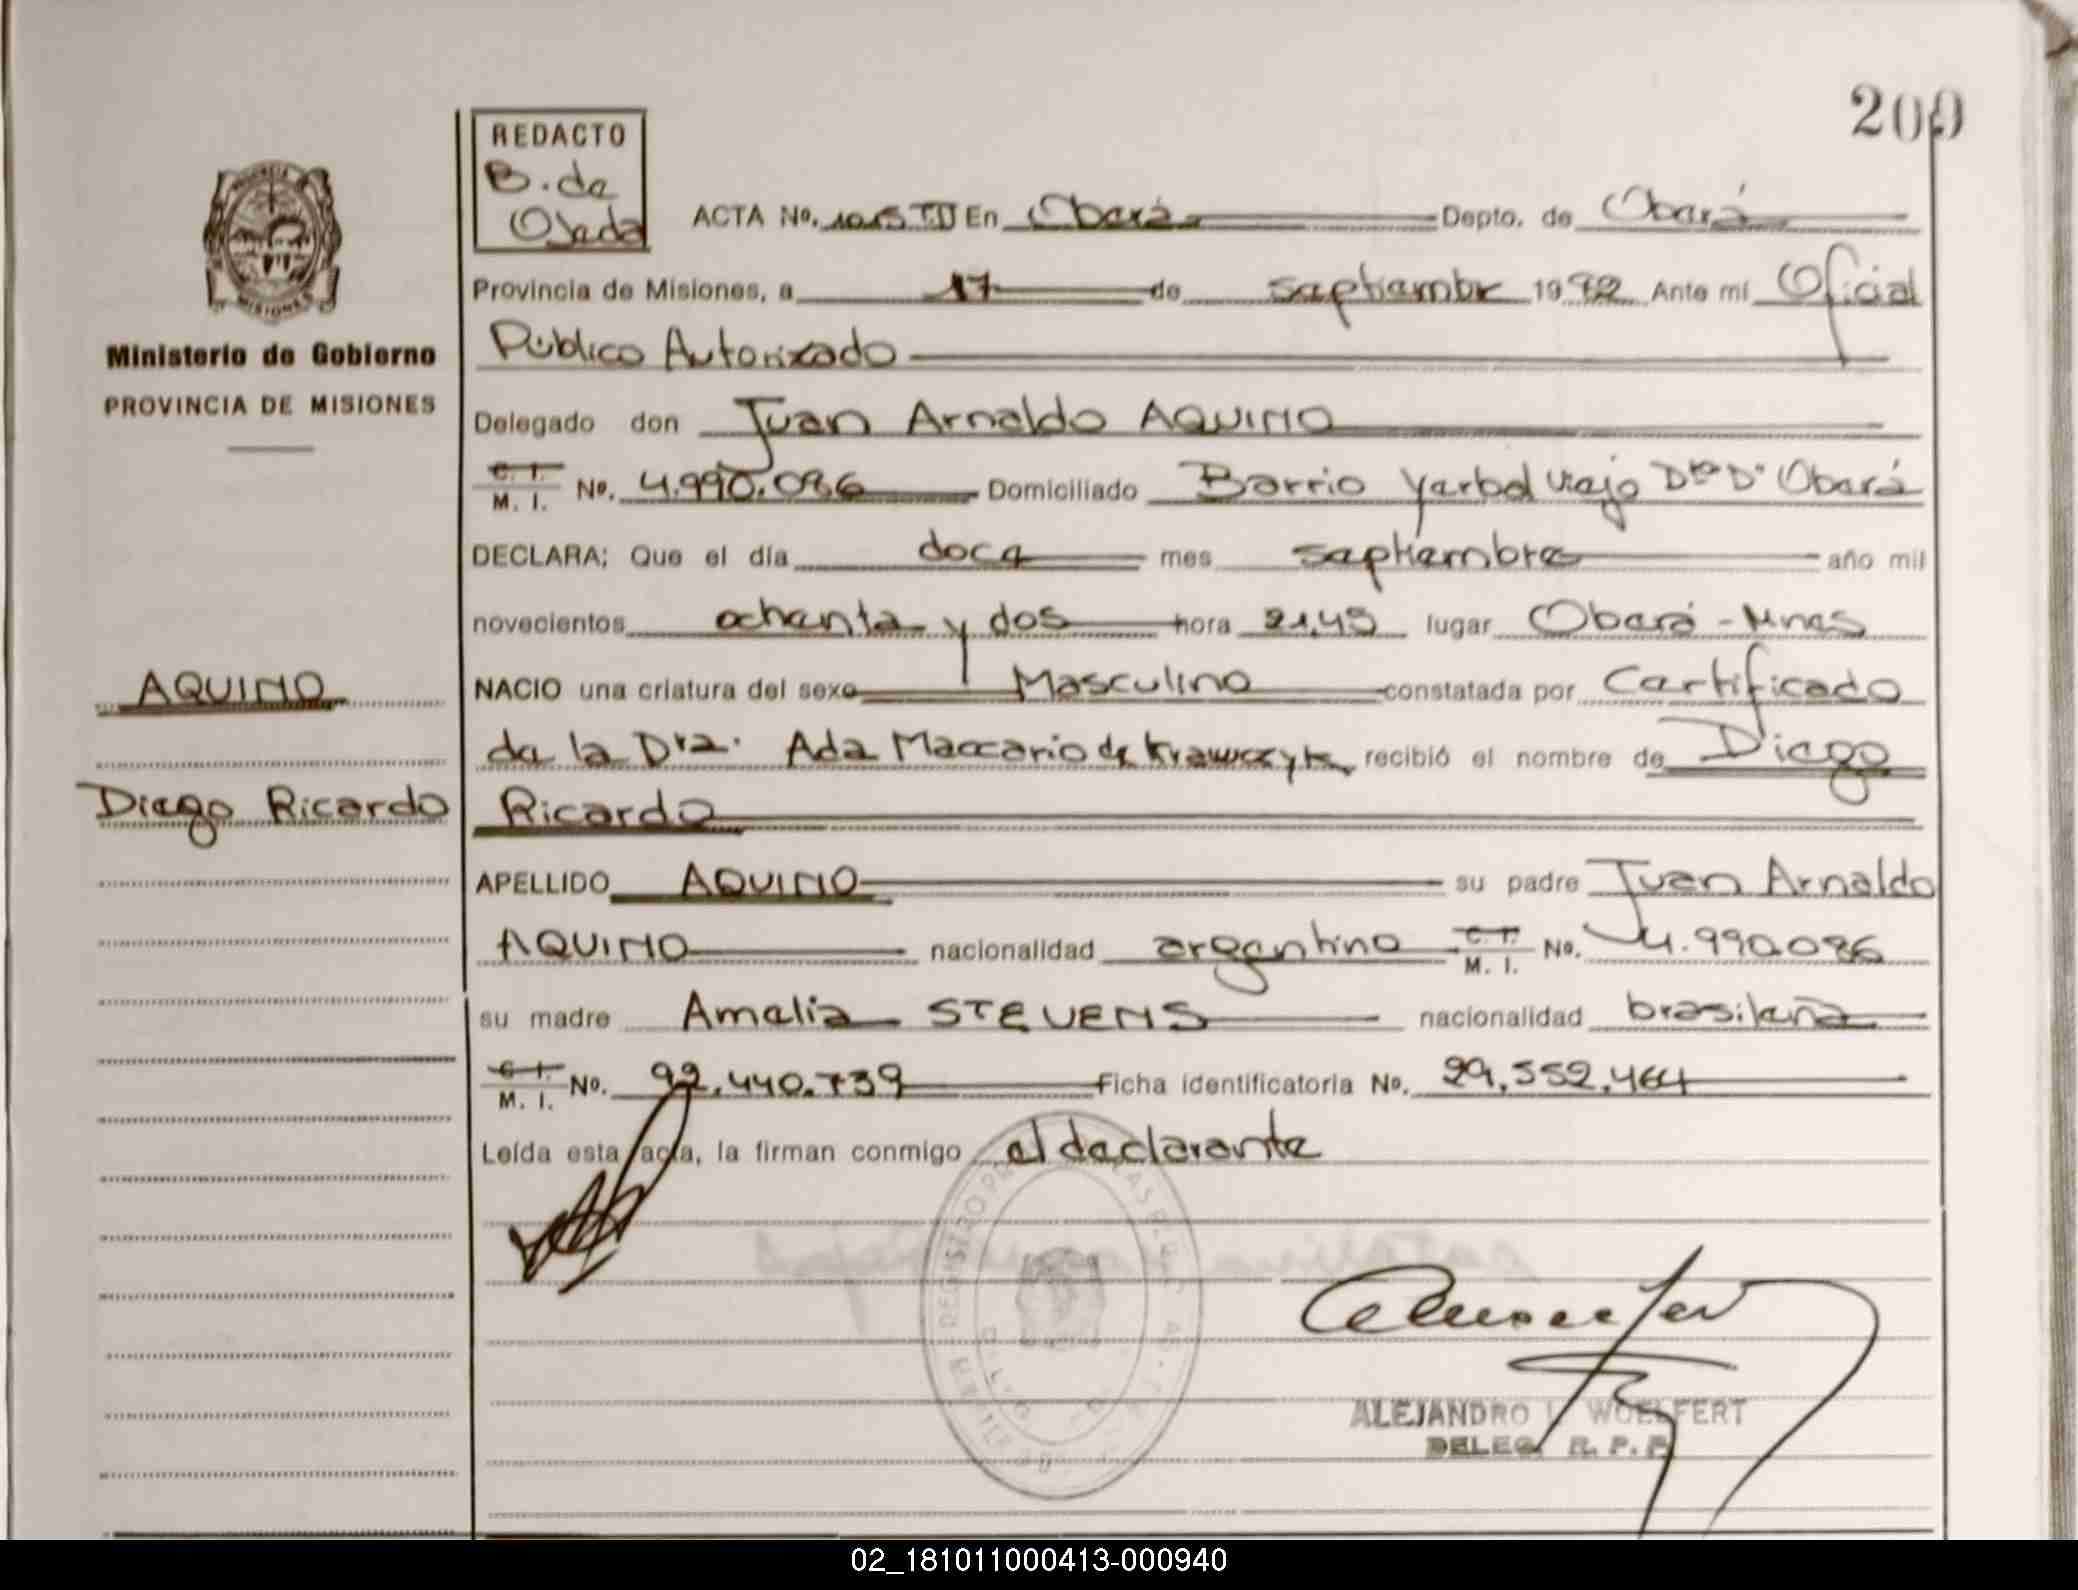 200
REDACTO
B. de
Ojeda
ACTA No. 1015 TII En Oberá Depto. de Oberá
Provincia de Misiones, a 17 de septiembre 1982 Ante mi Oficial
Público Autorizado
Delegado don Juan Arnaldo AQUINO
C. I.
M. I. No. 4.990.086 Domiciliado Barrio Yerbal Viejo Dto D. Oberá
DECLARA; Que el día doce mes septiembre año mil
novecientos ochenta y dos hora 21,45 lugar Oberá - Mnes
NACIO una criatura del sexo Masculino constatada por Certificado
de la Dra. Ada Maccario de Krawczyk recibió el nombre de Diego
Ricardo
APELLIDO AQUINO su padre Juan Arnaldo
AQUINO nacionalidad argentino C. I. M. I. No. 4.990.086
su madre Amelia STEVENS nacionalidad brasileña
C. I.
M. I. No. 92.440.739 Ficha identificatoria No. 29.552.464
Leída esta acta, la firman conmigo el declarante
ALEJANDRO L. WOELFERT
DELEG. R. P. P.
PROVINCIA
MISIONES
Ministerio de Gobierno
PROVINCIA DE MISIONES
AQUINO
Diego Ricardo
02_181011000413-000940